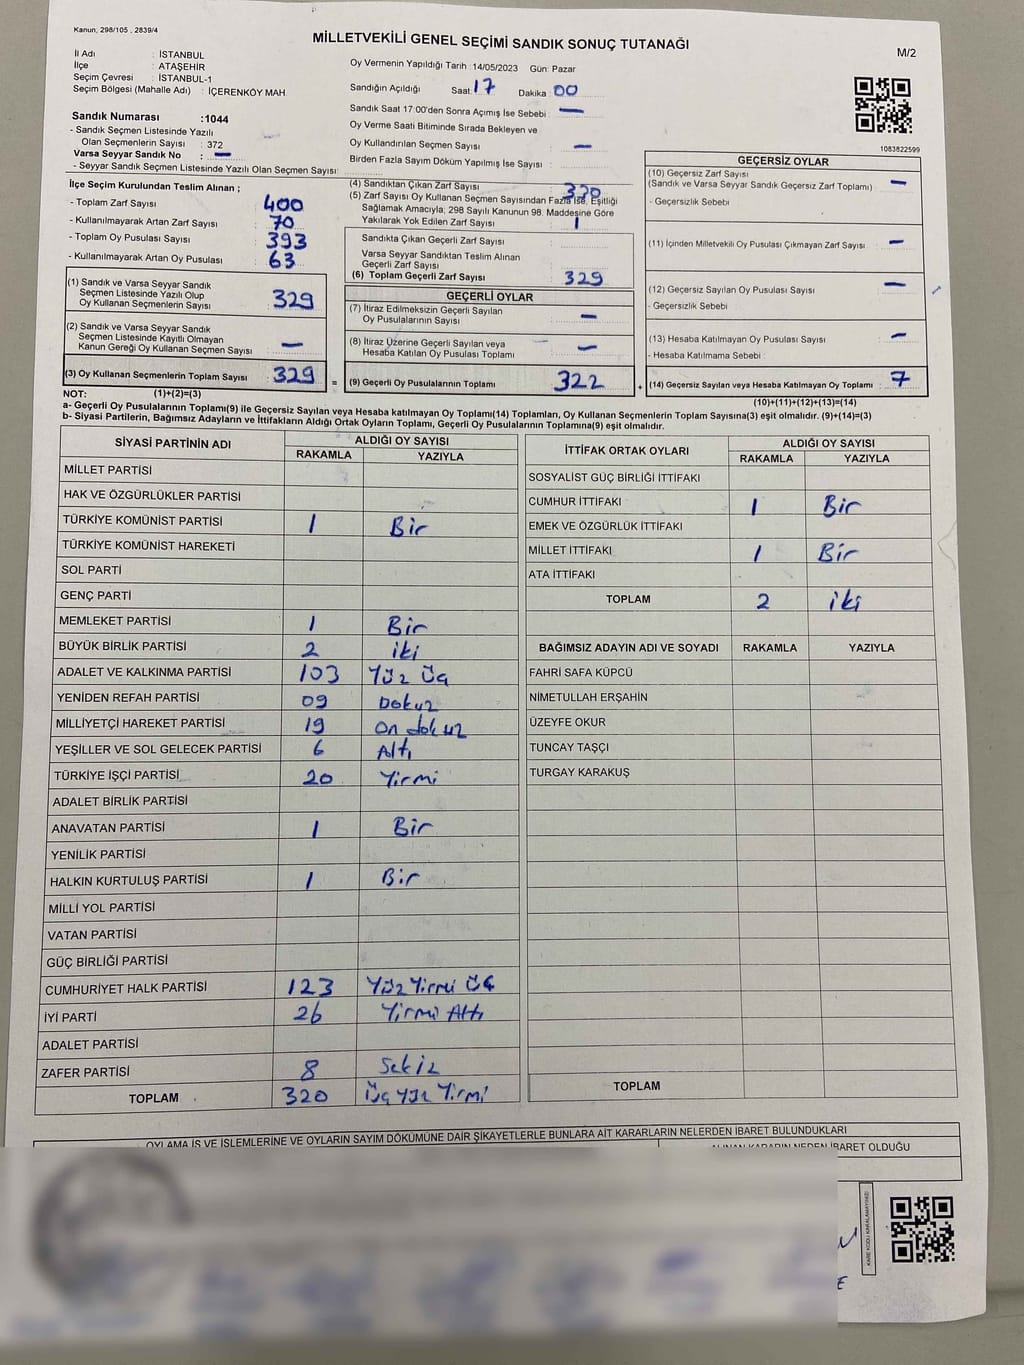 Kanun, 298/105 , 2839/4
MİLLETVEKİLİ GENEL SEÇİMİ SANDIK SONUÇ TUTANAĞI
M/2
İl Adı : İSTANBUL
İlçe : ATAŞEHİR
Seçim Çevresi : İSTANBUL-1
Seçim Bölgesi (Mahalle Adı) : İÇERENKÖY MAH.
Oy Vermenin Yapıldığı Tarih :14/05/2023 Gün: Pazar
Sandığın Açıldığı Saat: 17 Dakika : 00
Sandık Saat 17:00'den Sonra Açımış İse Sebebi : —
Oy Verme Saati Bitiminde Sırada Bekleyen ve
Oy Kullandırılan Seçmen Sayısı : —
Birden Fazla Sayım Döküm Yapılmış İse Sayısı :
1083822599
Sandık Numarası :1044
- Sandık Seçmen Listesinde Yazılı
Olan Seçmenlerin Sayısı : 372
Varsa Seyyar Sandık No : —
- Seyyar Sandık Seçmen Listesinde Yazılı Olan Seçmen Sayısı:
İlçe Seçim Kurulundan Teslim Alınan ;
- Toplam Zarf Sayısı : 400
- Kullanılmayarak Artan Zarf Sayısı : 70
- Toplam Oy Pusulası Sayısı : 393
- Kullanılmayarak Artan Oy Pusulası : 63
(1) Sandık ve Varsa Seyyar Sandık
Seçmen Listesinde Yazılı Olup
Oy Kullanan Seçmenlerin Sayısı : 329
(2) Sandık ve Varsa Seyyar Sandık
Seçmen Listesinde Kayıtlı Olmayan
Kanun Gereği Oy Kullanan Seçmen Sayısı : —
(3) Oy Kullanan Seçmenlerin Toplam Sayısı : 329 =
(4) Sandıktan Çıkan Zarf Sayısı : 330
(5) Zarf Sayısı Oy Kullanan Seçmen Sayısından Fazla İse, Eşitliği
Sağlamak Amacıyla; 298 Sayılı Kanunun 98. Maddesine Göre
Yakılarak Yok Edilen Zarf Sayısı : 1
Sandıkta Çıkan Geçerli Zarf Sayısı :
Varsa Seyyar Sandıktan Teslim Alınan
Geçerli Zarf Sayısı :
(6) Toplam Geçerli Zarf Sayısı : 329
GEÇERLİ OYLAR
(7) İtiraz Edilmeksizin Geçerli Sayılan
Oy Pusulalarının Sayısı : —
(8) İtiraz Üzerine Geçerli Sayılan veya
Hesaba Katılan Oy Pusulası Toplamı : —
(9) Geçerli Oy Pusulalarının Toplamı : 322 +
GEÇERSİZ OYLAR
(10) Geçersiz Zarf Sayısı
(Sandık ve Varsa Seyyar Sandık Geçersiz Zarf Toplamı) : —
- Geçersizlik Sebebi :
(11) İçinden Milletvekili Oy Pusulası Çıkmayan Zarf Sayısı : —
(12) Geçersiz Sayılan Oy Pusulası Sayısı : —
- Geçersizlik Sebebi :
(13) Hesaba Katılmayan Oy Pusulası Sayısı : —
- Hesaba Katılmama Sebebi :
(14) Geçersiz Sayılan veya Hesaba Katılmayan Oy Toplamı : 7
NOT: (1)+(2)=(3)
(10)+(11)+(12)+(13)=(14)
a- Geçerli Oy Pusulalarının Toplamı(9) ile Geçersiz Sayılan veya Hesaba katılmayan Oy Toplamı(14) Toplamları, Oy Kullanan Seçmenlerin Toplam Sayısına(3) eşit olmalıdır. (9)+(14)=(3)
b- Siyasi Partilerin, Bağımsız Adayların ve İttifakların Aldığı Ortak Oyların Toplamı, Geçerli Oy Pusulalarının Toplamına(9) eşit olmalıdır.
SİYASİ PARTİNİN ADI ALDIĞI OY SAYISI
RAKAMLA YAZIYLA
MİLLET PARTİSİ
HAK VE ÖZGÜRLÜKLER PARTİSİ
TÜRKİYE KOMÜNİST PARTİSİ 1 Bir
TÜRKİYE KOMÜNİST HAREKETİ
SOL PARTİ
GENÇ PARTİ
MEMLEKET PARTİSİ 1 Bir
BÜYÜK BİRLİK PARTİSİ 2 iki
ADALET VE KALKINMA PARTİSİ 103 Yüz Üç
YENİDEN REFAH PARTİSİ 09 Dokuz
MİLLİYETÇİ HAREKET PARTİSİ 19 On dokuz
YEŞİLLER VE SOL GELECEK PARTİSİ 6 Altı
TÜRKİYE İŞÇİ PARTİSİ 20 Yirmi
ADALET BİRLİK PARTİSİ
ANAVATAN PARTİSİ 1 Bir
YENİLİK PARTİSİ
HALKIN KURTULUŞ PARTİSİ 1 Bir
MİLLİ YOL PARTİSİ
VATAN PARTİSİ
GÜÇ BİRLİĞİ PARTİSİ
CUMHURİYET HALK PARTİSİ 123 Yüz Yirmi Üç
İYİ PARTİ 26 Yirmi Altı
ADALET PARTİSİ
ZAFER PARTİSİ 8 Sekiz
TOPLAM 320 Üç Yüz Yirmi
İTTİFAK ORTAK OYLARI ALDIĞI OY SAYISI
RAKAMLA YAZIYLA
SOSYALİST GÜÇ BİRLİĞİ İTTİFAKI
CUMHUR İTTİFAKI 1 Bir
EMEK VE ÖZGÜRLÜK İTTİFAKI
MİLLET İTTİFAKI 1 Bir
ATA İTTİFAKI
TOPLAM 2 iki
BAĞIMSIZ ADAYIN ADI VE SOYADI RAKAMLA YAZIYLA
FAHRİ SAFA KÜPCÜ
NİMETULLAH ERŞAHİN
ÜZEYFE OKUR
TUNCAY TAŞÇI
TURGAY KARAKUŞ
TOPLAM
OYLAMA İŞ VE İŞLEMLERİNE VE OYLARIN SAYIM DÖKÜMÜNE DAİR ŞİKAYETLERLE BUNLARA AİT KARARLARIN NELERDEN İBARET BULUNDUKLARI
ALINAN KARARIN NEDEN İBARET OLDUĞU
KARE KODU KARALAMAYINIZ!